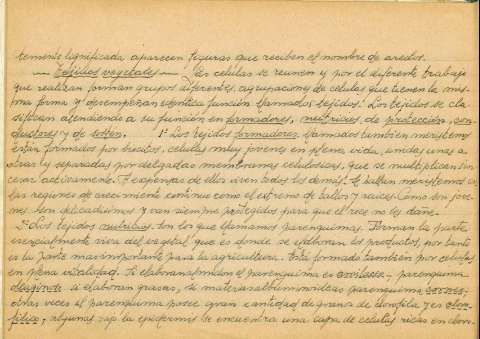 temente lignificada aparecen figuras que reciben el nombre de aredos.
— Tejidos vegetales — Las celulas se reunen y por el diferente trabajo
que realizan forman grupos diferentes, agrupacion de celulas que tienen la mis-
ma forma y desempeñan identica función llamados tejidos. Los tejidos se cla-
sifican atendiendo a su función en formadores, nutricios, de protección, con-
ductores y de sosten. 1º Los tejidos formadores llamados tambien meristemos
estan formados por celulas muy jovenes en plena vida, unidas unas a
otras y separadas por delgadas membranas celulosicas, que se multiplican sin
cesar activamente. A expensas de ellos viven todos los demás. Se hallan meristemos en
las regiones de crecimiento continuo como el extremo de tallos y raices. Como son jove-
nes son delicadisimos y van siempre protegidos para que el roce no les dañe.
2º Los tejidos nutricios son los que llamamos parenquimas. Forman la parte
esencialmente viva del vegetal que es donde se elaboran los productos, por tanto
es la parte mas importante para la agricultura. Esta formado tambien por celulas
en plena vitalidad. Si elabora almidon el parenquima es parenquima
si elaboran grasas, si materias albuminoideas parenquima
otras veces el parenquima posee gran cantidad de granos de clorofila y es cloro-
filico, algunas bajo la epidermis se encuentra una capa de celulas ricas en cloro-